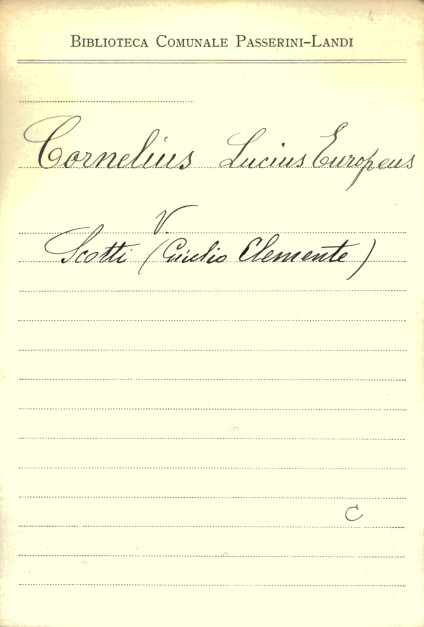 BIBLIOTECA COMUNALE PASSERINI-LANDI
Cornelius Lucius Europeus
V.
Scotti (Giulio Clemente)
C